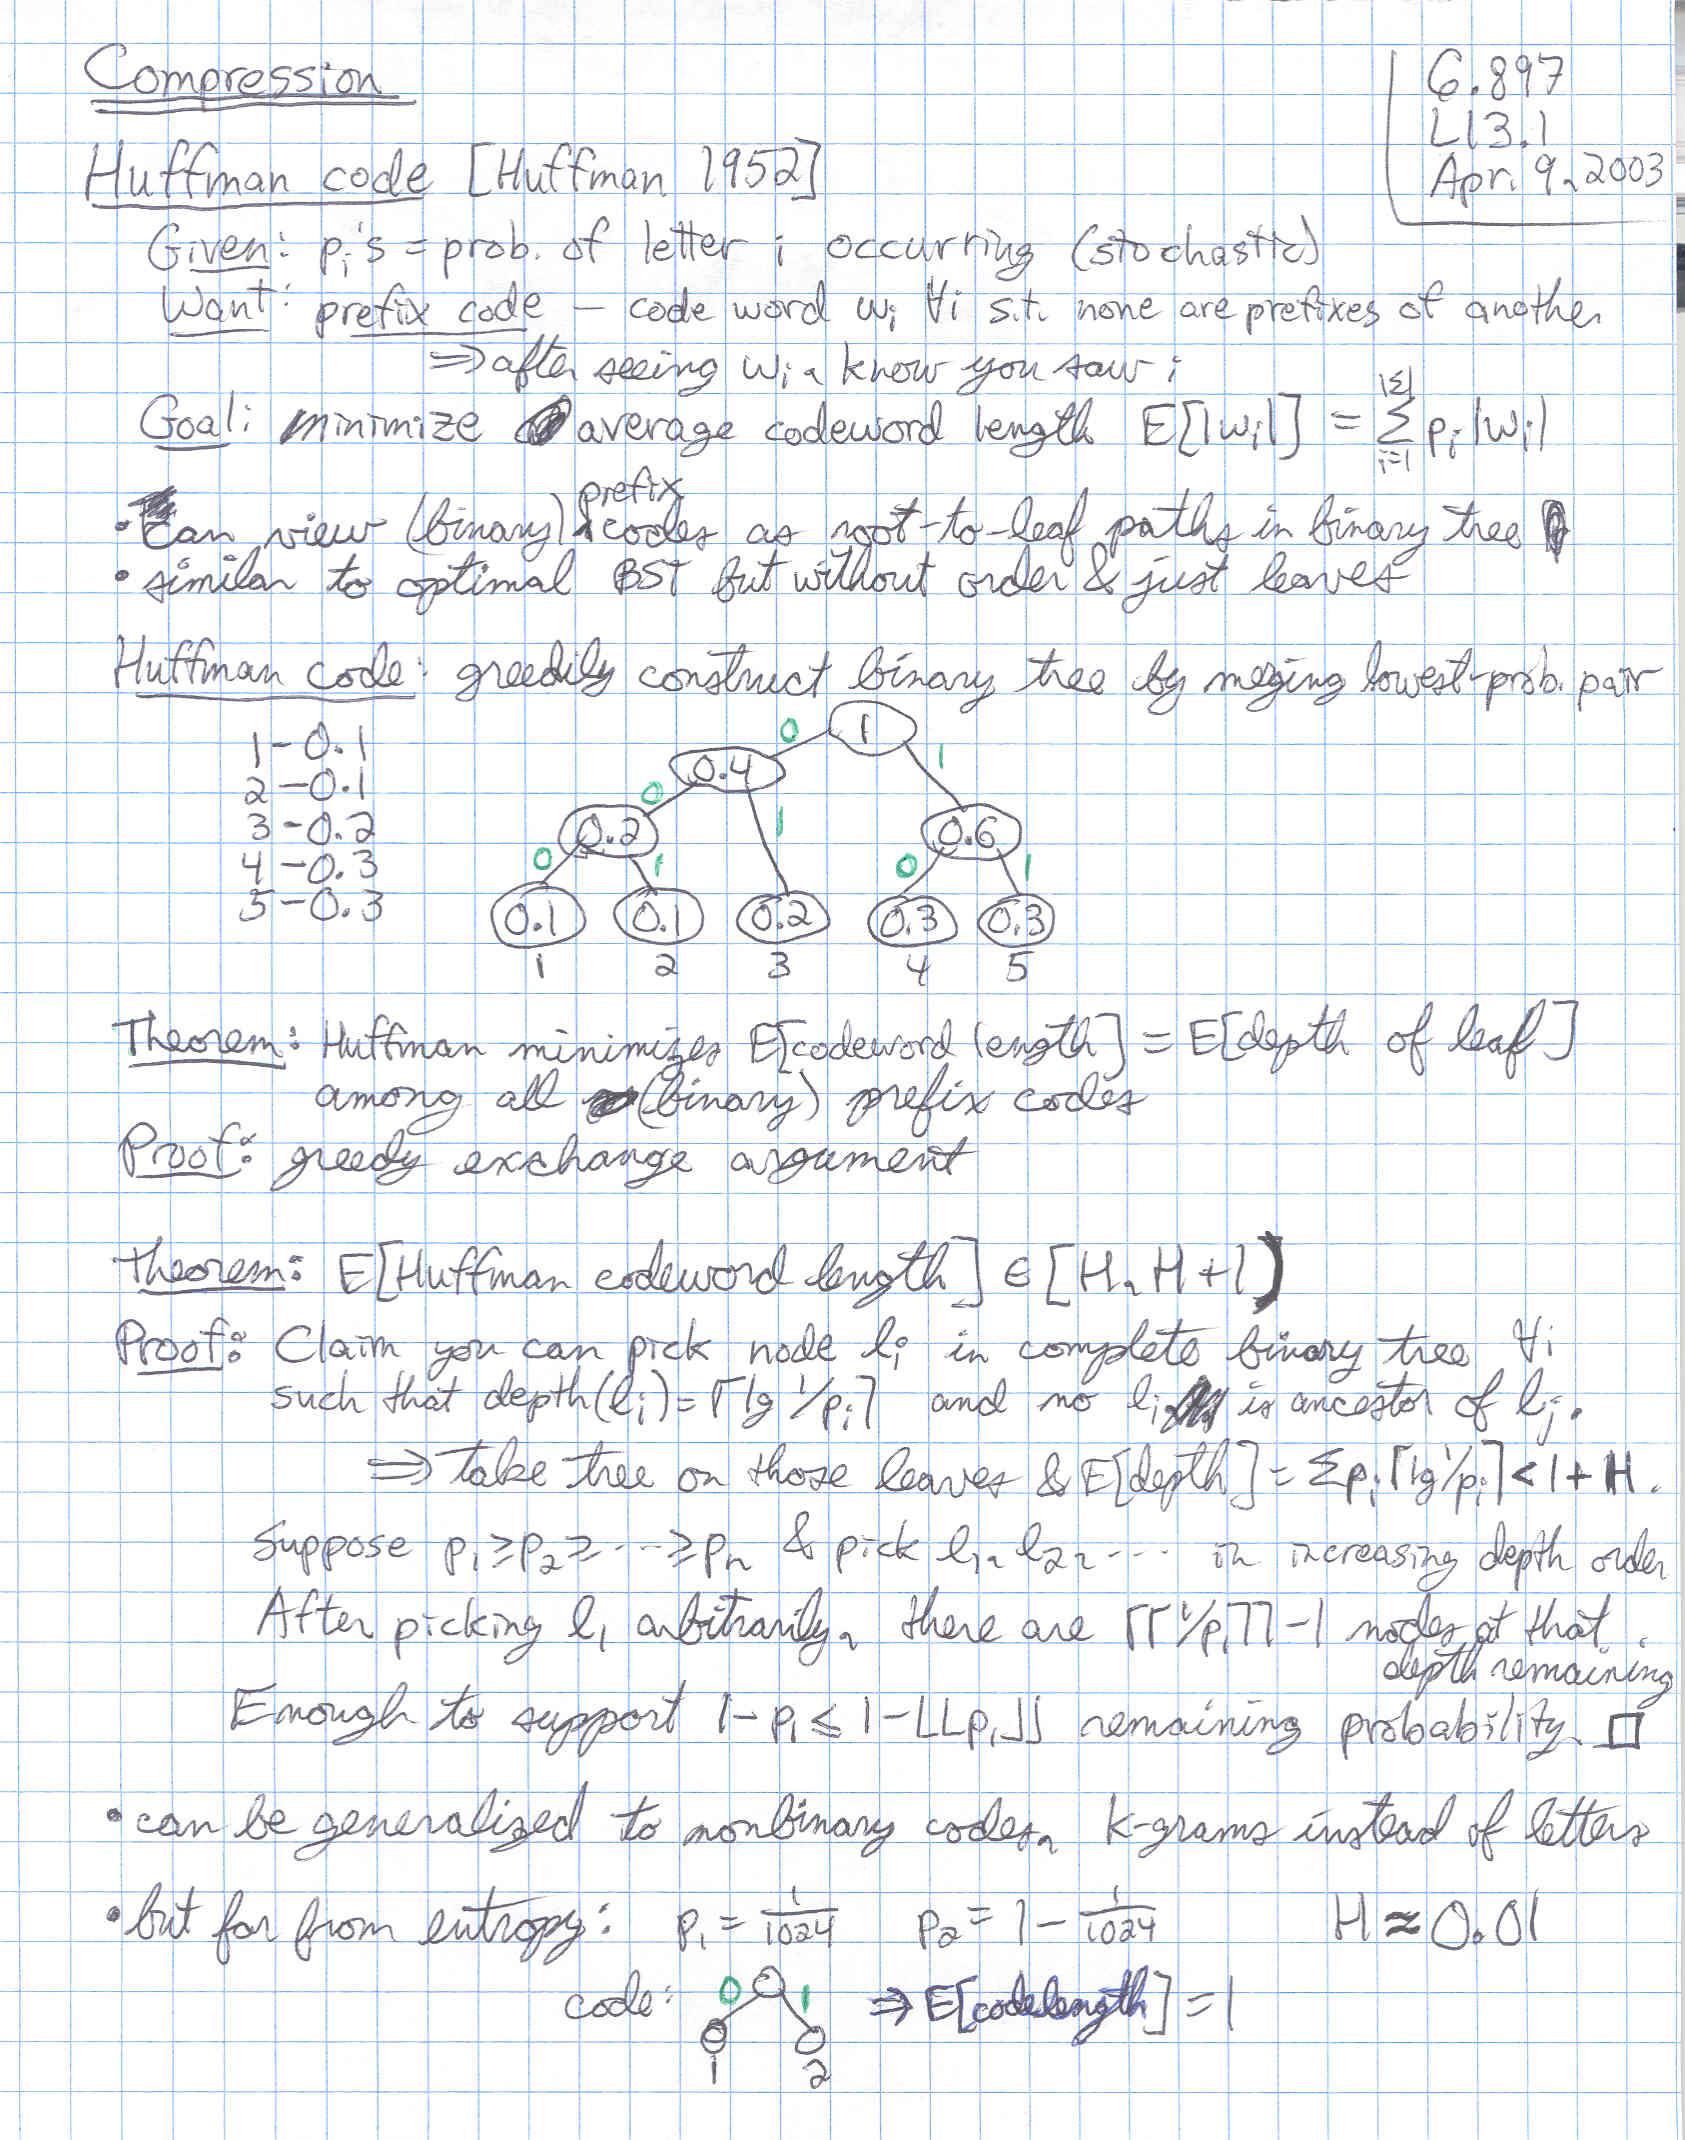 Compression
6.897
L13.1
Apr. 9, 2003
Huffman code [Huffman 1952]
Given: pᵢ's = prob. of letter i occurring (stochastic)
Want: prefix code — code word wᵢ ∀i s.t. none are prefixes of another
⇒ after seeing wᵢ, know you saw i
Goal: minimize average codeword length E[|wᵢ|] = Σ_{i=1}^{|Σ|} pᵢ|wᵢ|
• Can view (binary) prefix codes as root-to-leaf paths in binary tree
• similar to optimal BST but without order & just leaves
Huffman code: greedily construct binary tree by merging lowest-prob. pair
1 – 0.1
2 – 0.1
3 – 0.2
4 – 0.3
5 – 0.3
0 1 1
0 0.4
0.2 1 0.6
0 1 0 1
0.1 0.1 0.2 0.3 0.3
1 2 3 4 5
Theorem: Huffman minimizes E[codeword length] = E[depth of leaf]
among all (binary) prefix codes
Proof: greedy exchange argument
Theorem: E[Huffman codeword length] ∈ [H, H+1)
Proof: Claim you can pick node lᵢ in complete binary tree ∀i
such that depth(lᵢ) = ⌈lg 1/pᵢ⌉ and no lᵢ is ancestor of lⱼ.
⇒ take tree on those leaves & E[depth] = Σpᵢ⌈lg 1/pᵢ⌉ < 1 + H.
Suppose p₁ ≥ p₂ ≥ ··· ≥ pₙ & pick l₁, l₂, ··· in increasing depth order
After picking l₁ arbitrarily, there are ⌈⌈1/p₁⌉⌉ – 1 nodes at that
depth remaining
Enough to support 1 – p₁ ≤ 1 – ⌊⌊p₁⌋⌋ remaining probability. □
• can be generalized to nonbinary codes, k-grams instead of letters
• but far from entropy: p₁ = 1/1024 p₂ = 1 – 1/1024 H ≈ 0.01
code: 0 1 ⇒ E[codelength] = 1
1 2